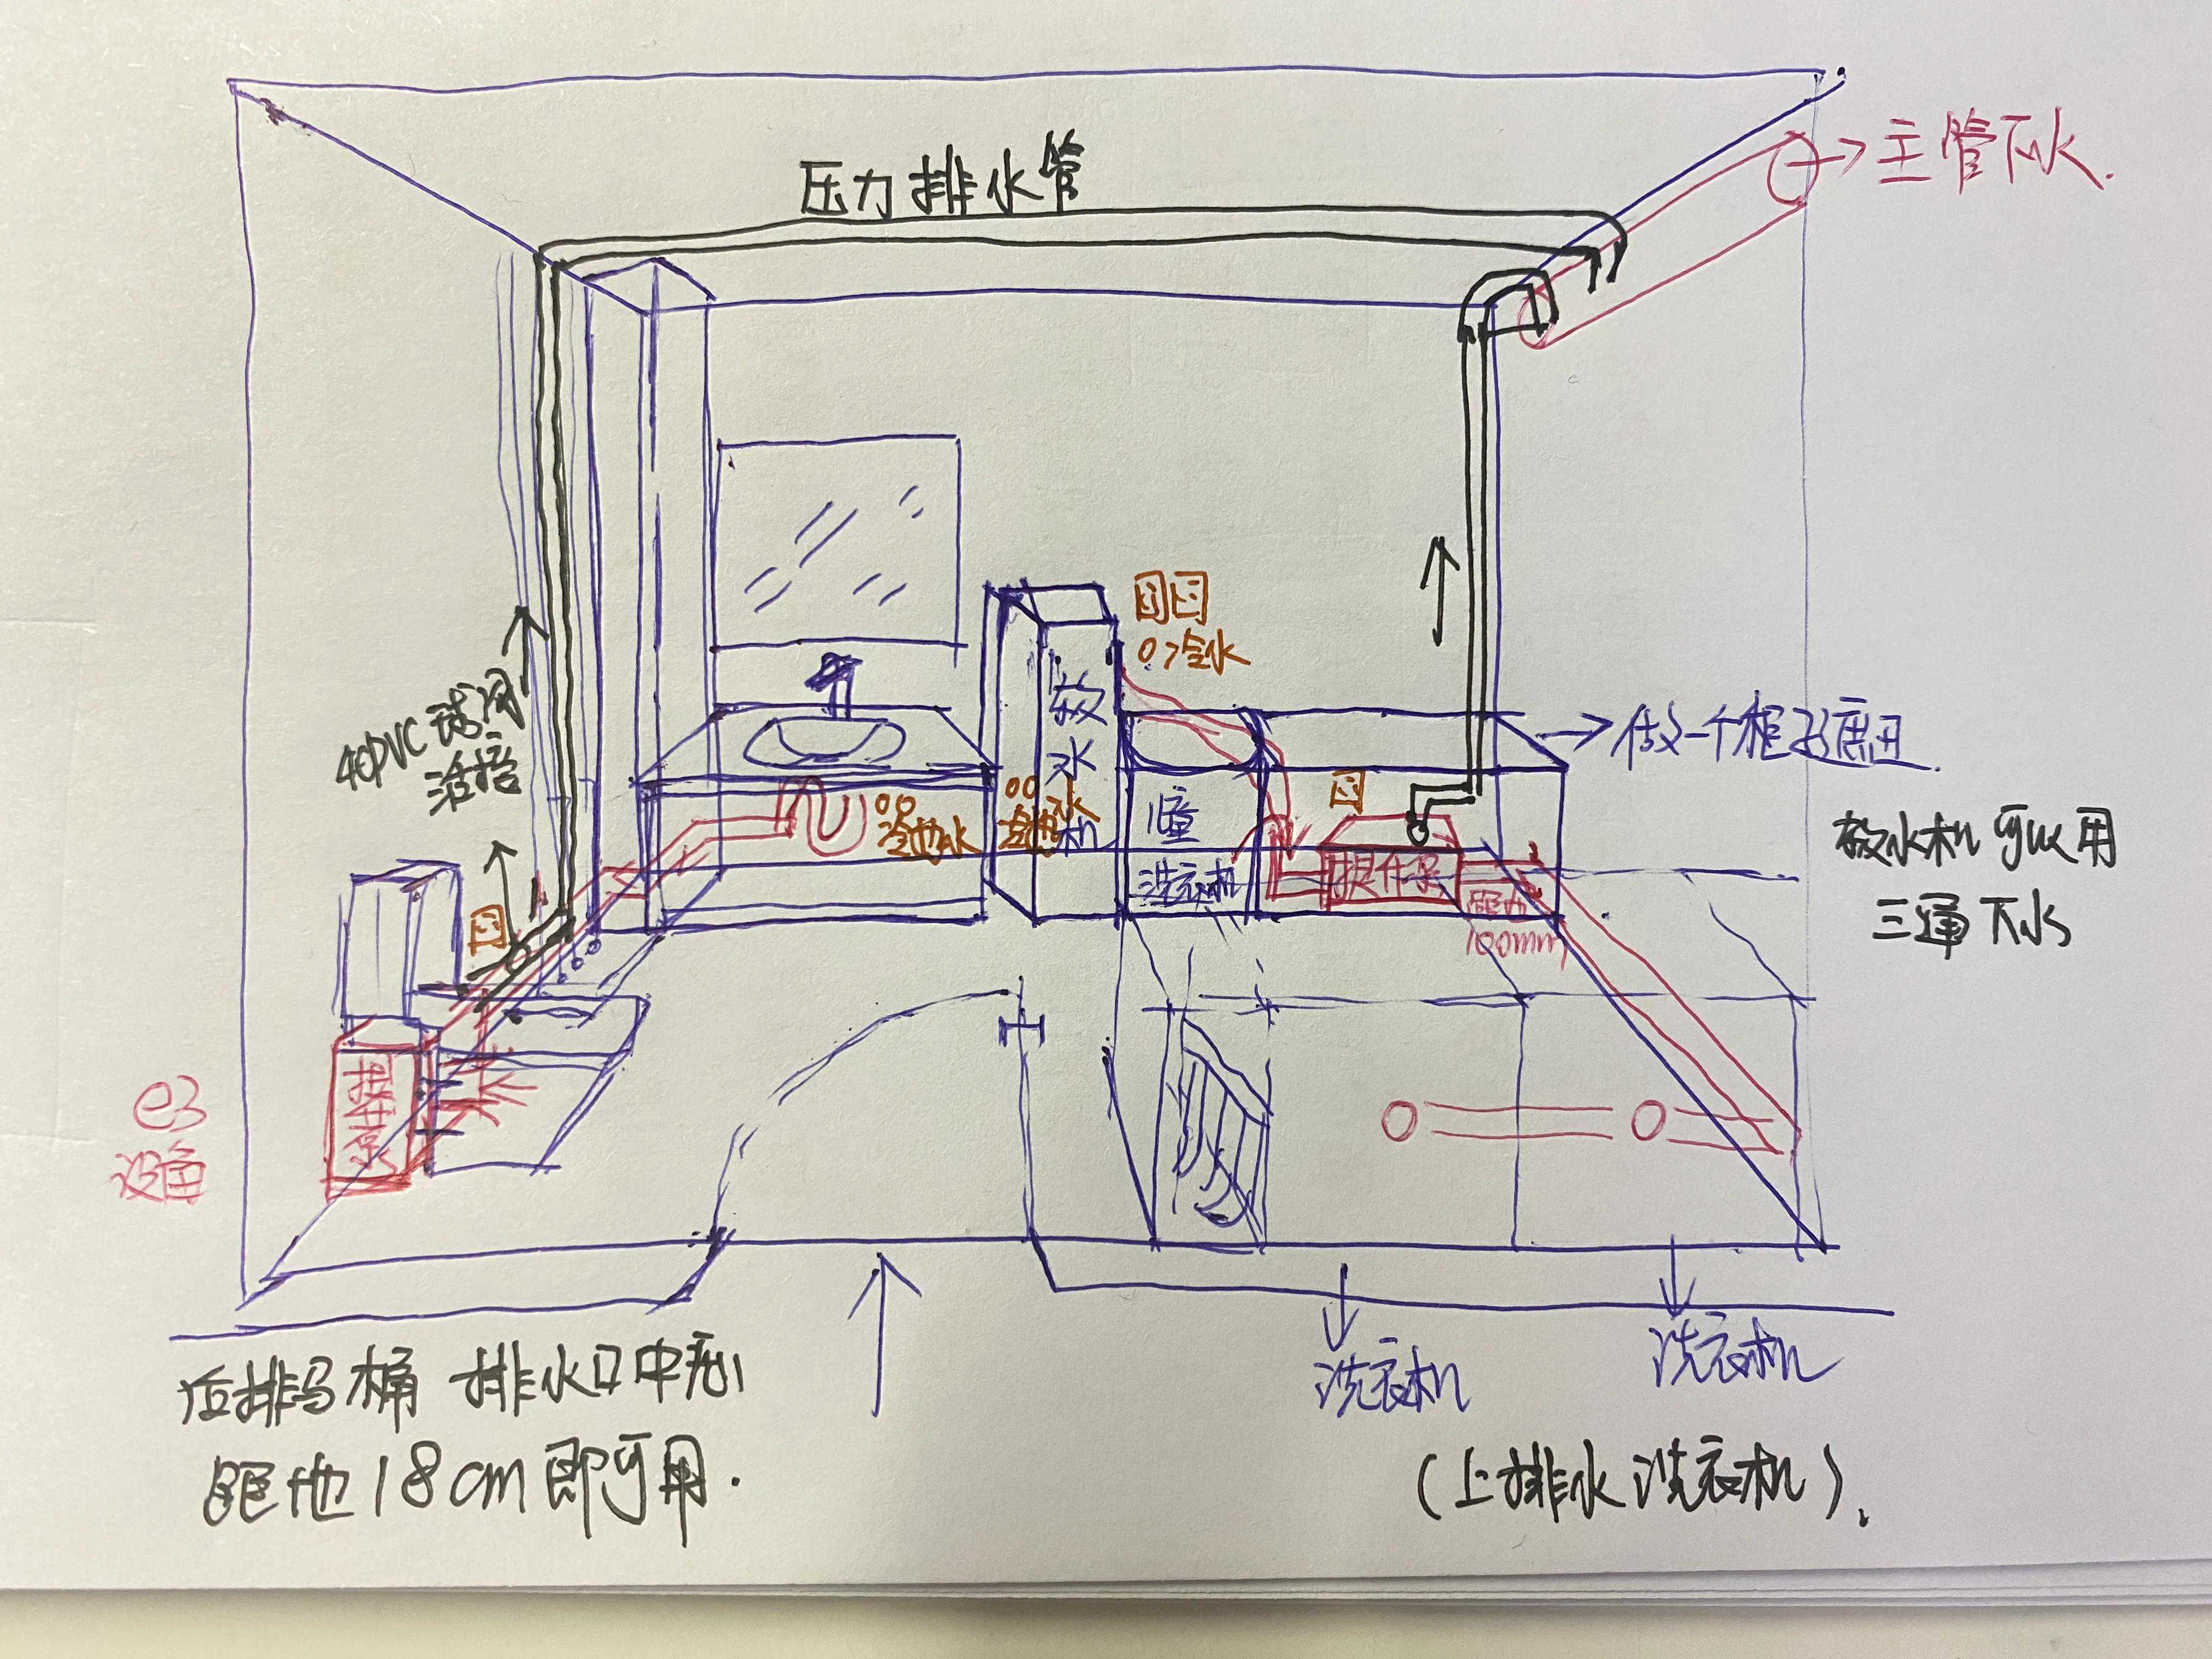 压力排水管
→主管下水.
40PVC球阀
活接
软
水
机
冷水
冷热水
儿童
洗衣机
提升泵
距地
100mm
→做一个柜子遮丑.
软水机可以用
三通下水
e3
设备
提升泵
后排马桶 排水口中心
距地18cm即可用.
洗衣机
洗衣机
(上排水洗衣机).